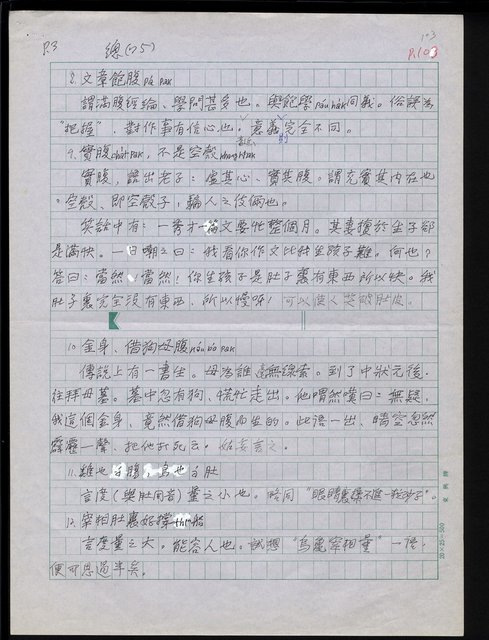 P.3 總(75) 103
P.103
8. 文章飽腹 pá pak
謂滿腹經綸、學問甚多也。與飽學 páu hák 同義。俗誤為
"把握"，對作事有信心也。意義完全不同。
9. 實腹 chát pak，不是空殼 khang khak
實腹，語出老子：虛其心、實其腹。謂充實其內在也
空殼、即空殼子，騙人之伎倆也。
笑話中有：一秀才一篇文要忙整個月。其妻擅於生子卻
是滿快。一日嘲之曰：我看你作文比我生孩子難。何也？
答曰：當然、當然！你生孩子是肚子裏有東西所以快。我
肚子裏完全沒有東西、所以慢呀！可以使人笑破肚皮。
10. 金身、借狗母腹 káu bó pak
傳說上有一書生。母為誰毫無線索。到了中狀元後，
往拜母墓。墓中忽有狗、慌忙走出。他喟然嘆曰：無疑，
我這個金身、竟然借狗母腹而生的。此語一出、晴空忽然
霹靂一聲、把他打死云。姑妄言之。
11. 雞也子腹，鳥也子肚
言度(與肚同音)量之小也。略同"眼睛裏
12. 宰相肚裏好撐 the 船
言度量之大。能容人也。試想"烏龜宰相量"一語，
便可思過半矣。
20×25=500